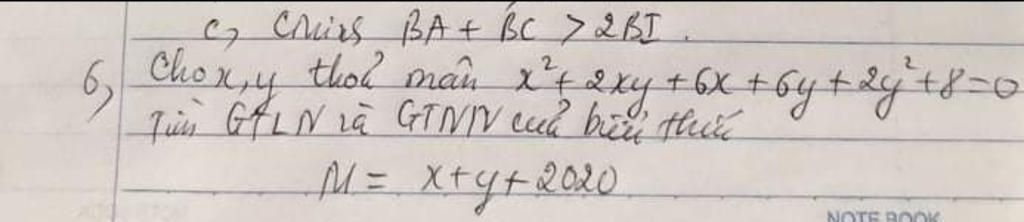 c, Cmirs BA + BC > 2BI.
6, Cho x, y thoả mãn x² + 2xy + 6x + 6y + 2y² + 8 = 0
Tìm GTLN và GTNN của biểu thức
M = x + y + 2020
NOTE BOOK